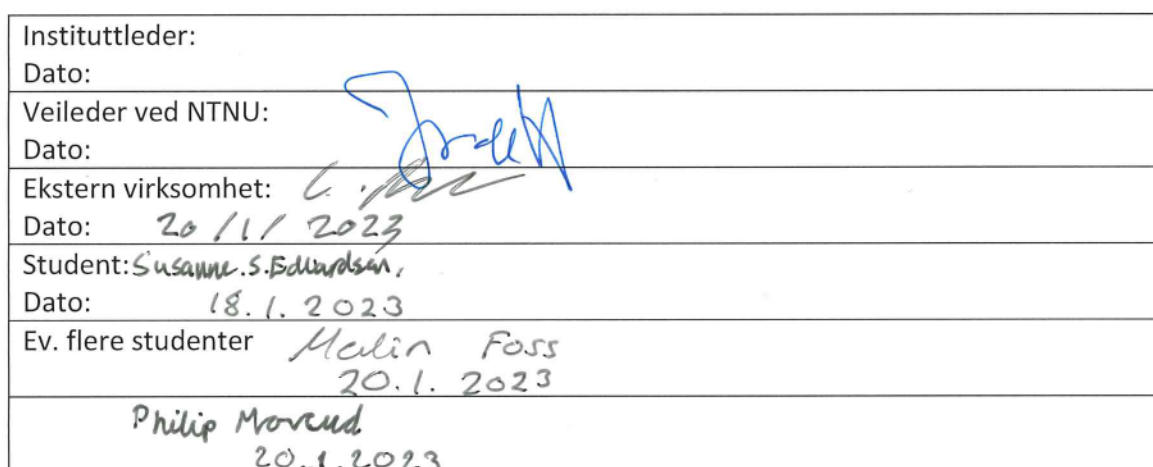 Instituttleder:
Dato:
Veileder ved NTNU:
Dato:
Ekstern virksomhet:
Dato: 20/1/ 2023
Student: Susanne.S.Edvardsen,
Dato: 18.1.2023
Ev. flere studenter Malin Foss
20.1. 2023
Philip
20.1.2023